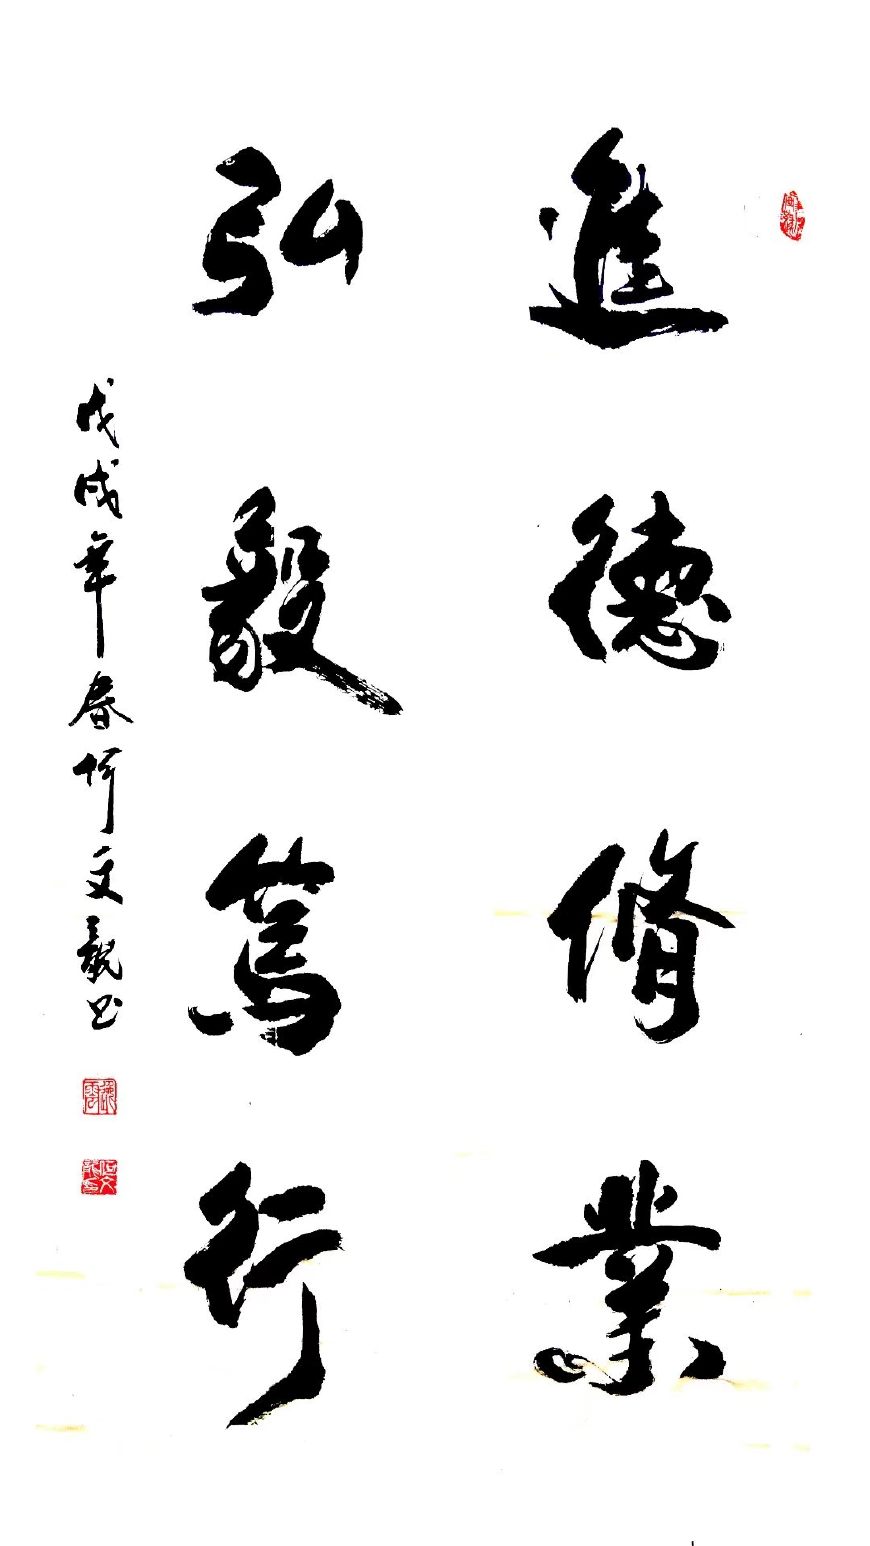 進德脩業
弘毅篤行
戊戌年春何文龍书